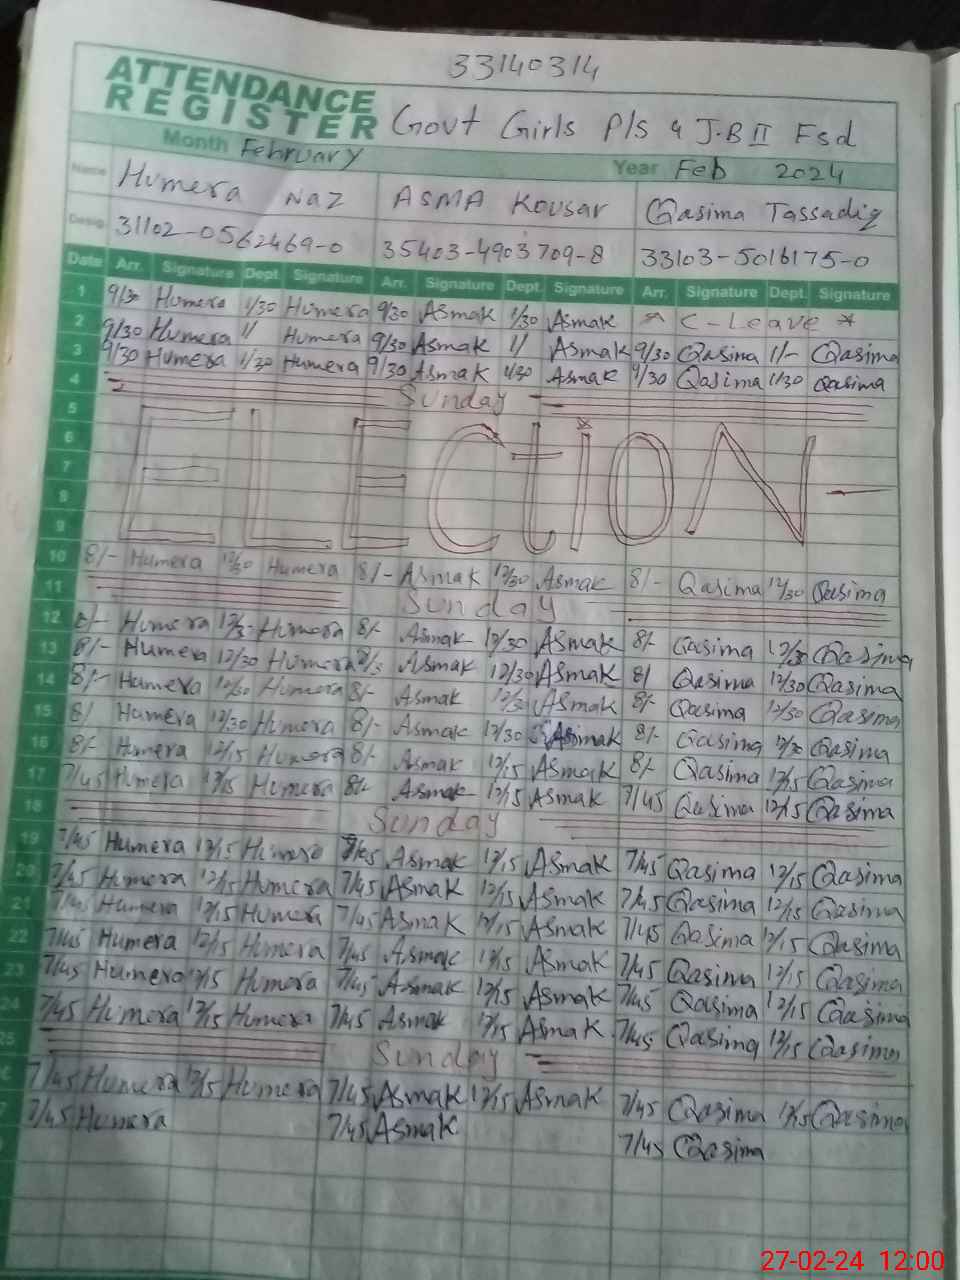 33140314
ATTENDANCE
REGISTER Govt Girls P/S 4 J.B II Fsd
Month February Year Feb 2024
Name Humera Naz ASMA Kousar Qasima Tassadiq
Desig. 31102-0562469-0 35403-4903709-8 33103-5016175-0
Date Arr. Signature Dept. Signature Arr. Signature Dept. Signature Arr. Signature Dept. Signature
1 9/30 Humera 1/30 Humera 9/30 Asmak 1/30 Asmak * C-Leave *
2 9/30 Humera 1/ Humera 9/30 Asmak 1/ Asmak 9/30 Qasima 1/- Qasima
3 9/30 Humera 1/30 Humera 9/30 Asmak 1/30 Asmak 9/30 Qasima 1/30 Qasima
4 Sunday
5
6
7 ELECtiON -
8
9
10 8/- Humera 12/30 Humera 8/- Asmak 12/30 Asmak 8/- Qasima 12/30 Qasima
11 Sunday
12 8/- Humera Humera 8/- Asmak 12/30 Asmak 8/- Qasima 12/30 Qasima
13 8/- Humera 12/30 Humera Asmak 12/30 Asmak 8/ Qasima 12/30 Qasima
14 8/- Humera 12/30 Humera 8/- Asmak 12/30 Asmak 8/- Qasima 12/30 Qasima
15 8/ Humera 12/30 Humera 8/- Asmak 12/30 Asmak 8/- Qasima 12/30 Qasima
16 8/- Humera 12/15 Humera 8/- Asmak 12/15 Asmak 8/- Qasima 12/15 Qasima
17 7/45 Humera 12/15 Humera 8/- Asmak 12/15 Asmak 7/45 Qasima 12/15 Qasima
18 Sunday
19 7/45 Humera 12/15 Humera 7/45 Asmak 12/15 Asmak 7/45 Qasima 12/15 Qasima
20 7/45 Humera 12/15 Humera 7/45 Asmak 12/15 Asmak 7/45 Qasima 12/15 Qasima
21 7/45 Humera 12/15 Humera 7/45 Asmak 12/15 Asmak 7/45 Qasima 12/15 Qasima
22 7/45 Humera 12/15 Humera 7/45 Asmak 12/15 Asmak 7/45 Qasima 12/15 Qasima
23 7/45 Humera 12/15 Humera 7/45 Asmak 12/15 Asmak 7/45 Qasima 12/15 Qasima
24 7/45 Humera 12/15 Humera 7/45 Asmak 12/15 Asmak 7/45 Qasima 12/15 Qasima
25 Sunday
7/45 Humera 12/15 Humera 7/45 Asmak 12/15 Asmak 7/45 Qasima 12/15 Qasima
7/45 Humera 7/45 Asmak 7/45 Qasima
27-02-24 12:00